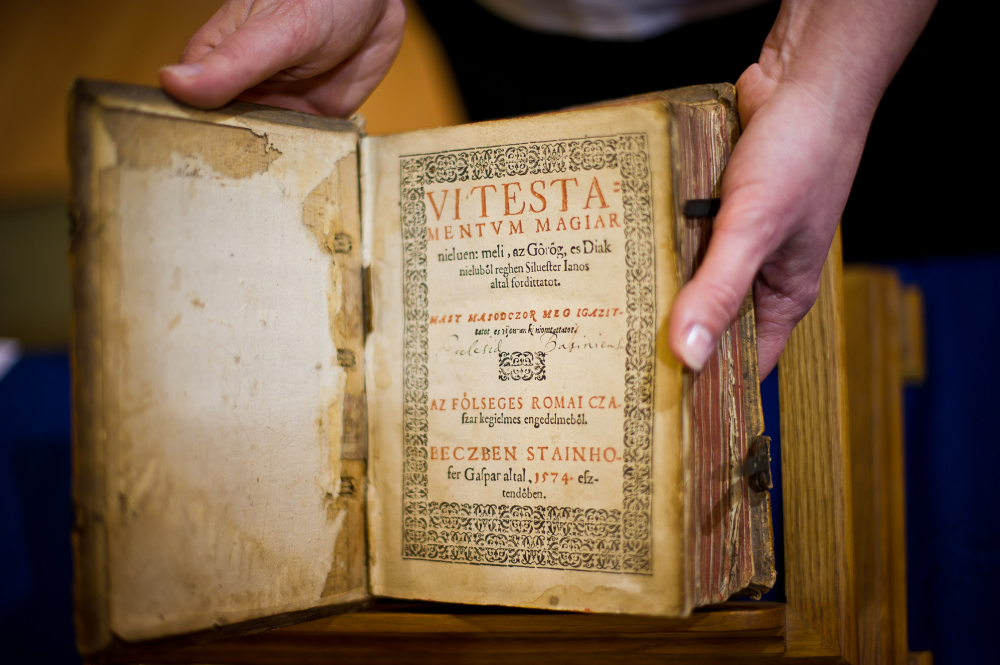 VI TESTA=
MENTVM MAGIAR
nieluen: meli, az Gôrôg, es Diak
nielubôl reghen Siluester Ianos
altal fordittatot.
MAST MASODCZOR MEG IGAZIT-
tatot es niomtattatot.
AZ FÔLSEGES ROMAI CZA-
ſzar kegielmes engedelmebôl.
BECZBEN STAINHO-
fer Gaſpar altal, 1574. eſz-
tendôben.